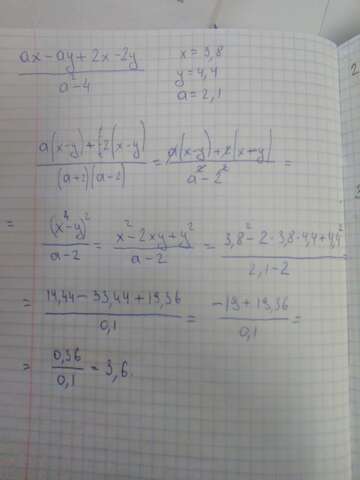 ax - ay + 2x - 2y / a² - 4    x = 3,8
y = 4,4
a = 2,1
a(x-y) + 2(x-y) / (a+2)(a-2) = a(x-y) + 2(x+y) / a² - 2² =
= (x - y)² / a - 2 = x² - 2xy + y² / a - 2 = 3,8² - 2 · 3,8 · 4,4 + 4,4² / 2,1 - 2 =
= 14,44 - 33,44 + 19,36 / 0,1 = -19 + 19,36 / 0,1 =
= 0,36 / 0,1 = 3,6.